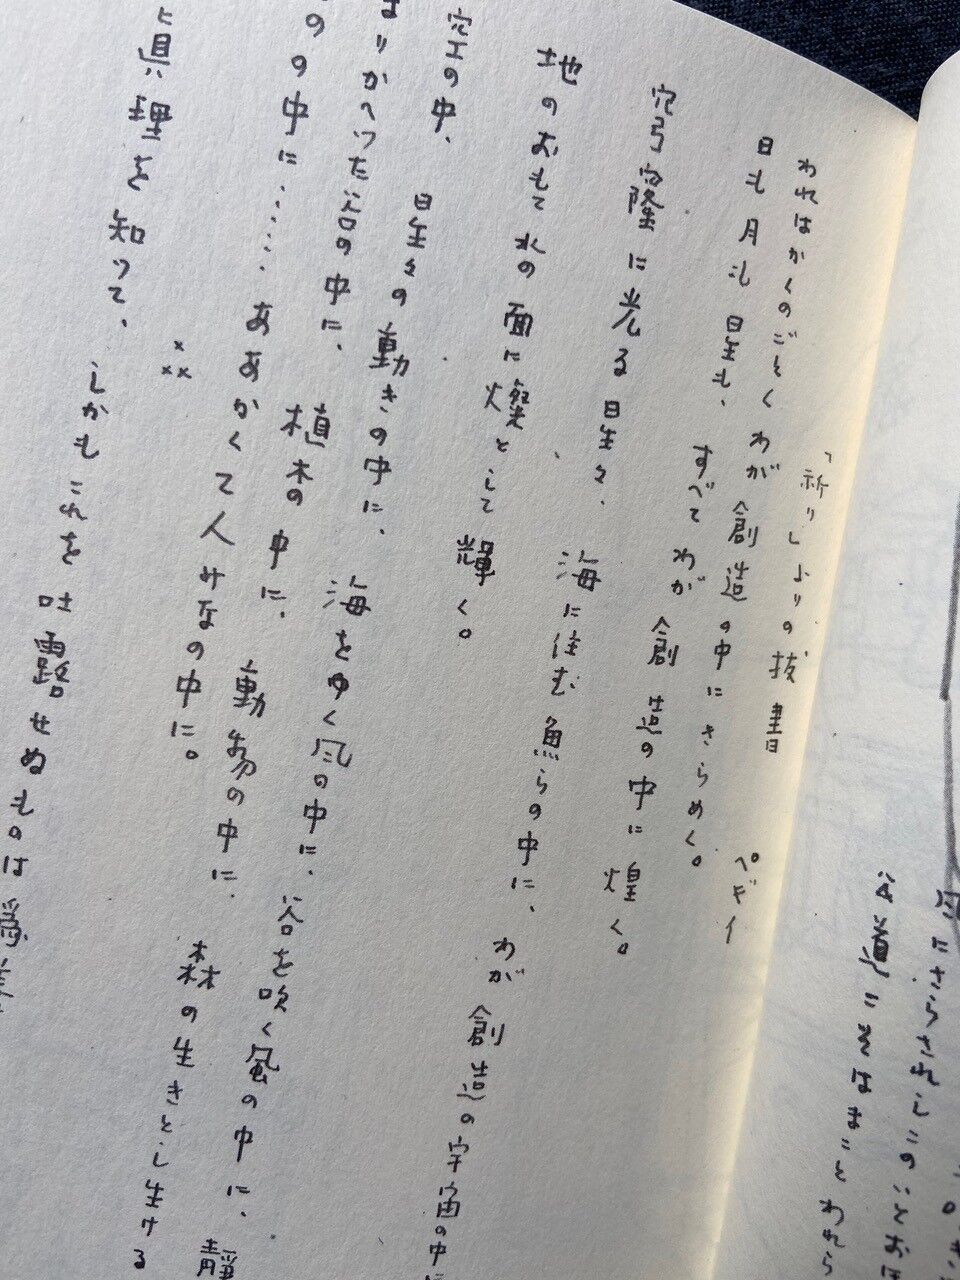 らされしこのことお
道こそはまことわれら
「祈り」よりの抜書　ペギイ
われはかくのごとくわが創造の中にきらめく。
日も月も星も、すべてわが創造の中に煌く。
穹窿に光る星々、海に住む魚らの中に、わが創造の宇宙の中に
地のおもて水の面に燦として輝く。
空の中、星々の動きの中に、海をゆく風の中に、谷を吹く風の中に、靜
まりかへつた谷の中に、植木の中に、動物の中に、森の生きとし生ける
のの中に……ああかくて人みなの中に。
×××
眞理を知つて、しかもこれを吐露せぬものは